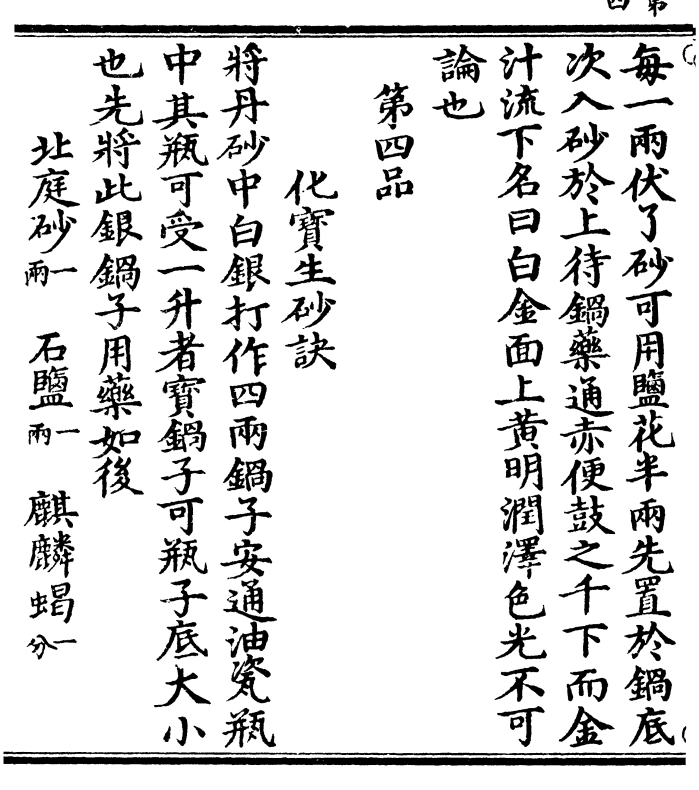 每一兩伏了砂可用鹽花半兩先置於鍋底
次入砂於上待鍋藥通赤便鼓之千下而金
汁流下名曰白金面上黃明潤澤色光不可
論也
第四品
化寶生砂訣
將丹砂中白銀打作四兩鍋子安通油瓷瓶
中其瓶可受一升者寶鍋子可瓶子底大小
也先將此銀鍋子用藥如後
北庭砂一兩 石鹽一兩 麒麟蝎一分